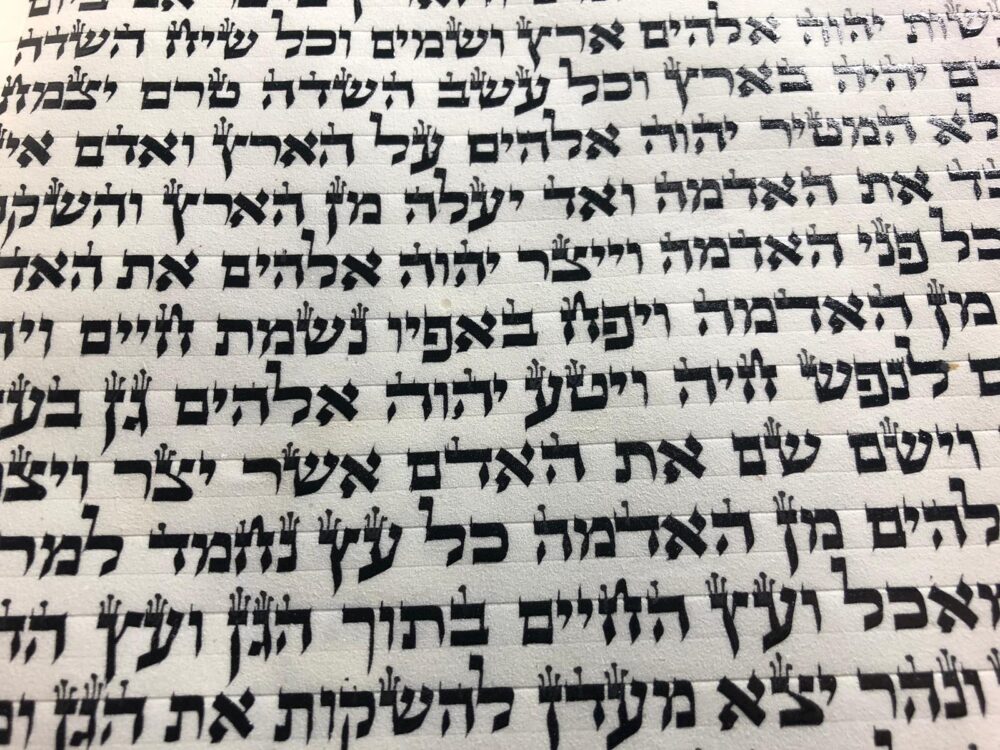 ביום
שות יהוה אלהים ארץ ושמים וכל שיח השדה
רם יהיה בארץ וכל עשב השדה טרם יצמח
לא המטיר יהוה אלהים על הארץ ואדם אין
בד את האדמה ואד יעלה מן הארץ והשק
כל פני האדמה וייצר יהוה אלהים את האד
מן האדמה ויפח באפיו נשמת חיים ויה
ם לנפש חיה ויטע יהוה אלהים גן בעד
וישם שם את האדם אשר יצר ויצמ
להים מן האדמה כל עץ נחמד למר
מאכל ועץ החיים בתוך הגן ועץ הד
ונהר יצא מעדן להשקות את הגן ומ